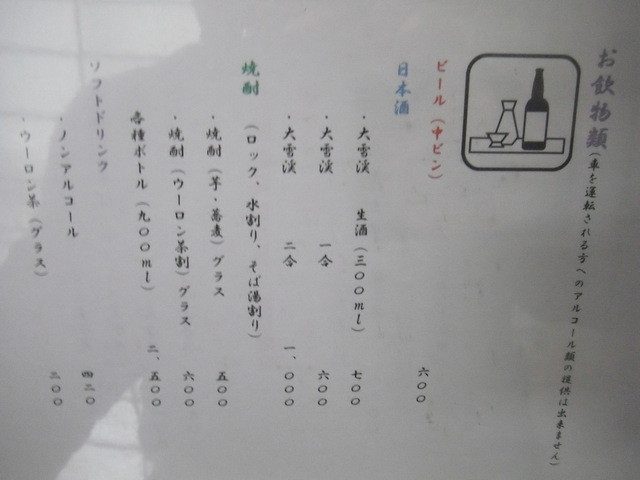 お飲物類（車を運転される方へのアルコール類の提供は出来ません）
ビール（中ビン） 六〇〇
日本酒
・大雪渓 生酒（三〇〇ml） 七〇〇
・大雪渓 一合 六〇〇
・大雪渓 二合 一、〇〇〇
焼酎（ロック、水割り、そば湯割り）
・焼酎（芋・蕎麦）グラス 五〇〇
・焼酎（ウーロン茶割）グラス 六〇〇
各種ボトル（九〇〇ml） 二、五〇〇
ソフトドリンク
・ノンアルコール 四二〇
・ウーロン茶（グラス） 二〇〇